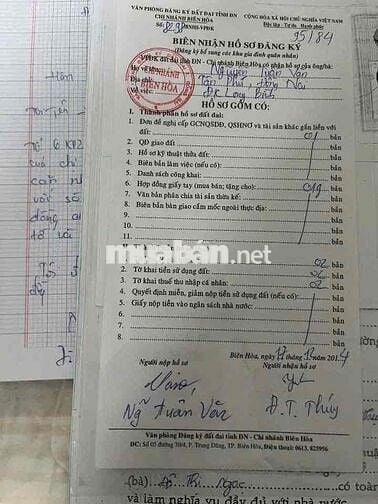 VĂN PHÒNG ĐĂNG KÝ ĐẤT ĐAI TỈNH ĐN
CHI NHÁNH BIÊN HÒA
CỘNG HÒA XÃ HỘI CHỦ NGHĨA VIỆT NAM
Độc lập - Tự do - Hạnh phúc
/BNHS-VPĐK
95184
BIÊN NHẬN HỒ SƠ ĐĂNG KÝ
(Đăng ký bổ sung các khu gia đình quân nhân)
VPĐK đất đai ĐN - Chi nhánh Biên Hòa có nhận hồ sơ của ông/bà:
Họ và tên: Nguyễn Tuấn Văn
Tân Phú, Đồng Nai
Về việc: ĐK Long Bình
CHI NHÁNH
BIÊN HÒA
HỒ SƠ GỒM CÓ:
I. Thành phần hồ sơ đất đai:
1. Đơn đề nghị cấp GCNQSDĐ, QSHNƠ và tài sản khác gắn liền với
đất: 01 bản
2. QĐ giao đất: bản
3. Hồ sơ kỹ thuật thửa đất: bản
4. Biên bản làm việc (nếu có): bản
5. Danh sách công khai: bản
6. Hợp đồng giấy tay (mua bán; tặng cho): bản
7. Văn bản phân chia tài sản thừa kế: bản
8. Biên bản bàn giao cắm mốc ngoài thực địa: bản
9. bản
10. bản
11. bản
muaban.net
02 bản
2. Tờ khai tiền sử dụng đất: 02 bản
3. Tờ khai thuế thu nhập cá nhân: 02 bản
4. Quyết định miễn, giảm nộp tiền sử dụng đất (nếu có): bản
5. Giấy nộp tiền vào ngân sách nhà nước: bản
6. bản
7. bản
8. bản
Biên Hòa, ngày 12 2014
Người nộp hồ sơ
Người nhận hồ sơ
Văn
Ng Tuấn Văn
Đ.T. Thúy
Văn phòng Đăng ký đất đai tỉnh ĐN - Chi nhánh Biên Hòa
ĐC: Số 05 đường 30/4, P. Trung Dũng, TP. Biên Hòa, Điện thoại: 0613, 825956
(bà) Thị Ngọc
có toàn
và làm nghĩa vụ đầy đủ với nhà nước